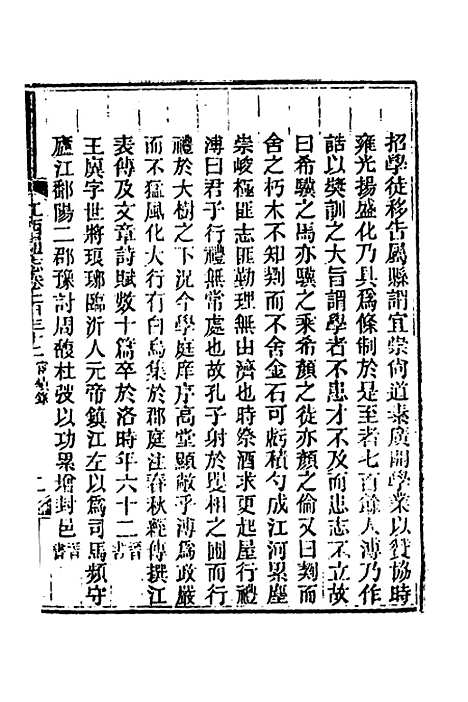 招學徒移告屬縣謂宜崇尚道素廣開學業以贊協時
雍光揚盛化乃具為條制於是至者七百餘人溥乃作
誥以奬訓之大旨謂學者不患才不及而患志不立故
曰希驥之馬亦驥之乘希顏之徒亦顏之倫又曰剗而
舍之朽木不知剗而不舍金石可虧積勺成江河累塵
崇峻極匪志匪勤理無由濟也時祭酒求更起屋行禮
溥曰君子行禮無常處也故孔子射於矍相之圃而行
禮於大樹之下況今學庭庠序高堂顯敞乎溥為政嚴
而不猛風化大行有白烏集於郡庭注春秋經傳撰江
表傳及文章詩賦數十篇卒於洛時年六十二晉書
王廙字世將琅琊臨沂人元帝鎮江左以為司馬頻守
廬江鄱陽二郡豫討周馥杜弢以功累增封邑晉書
江西通志卷一百三十二 宦績錄 二